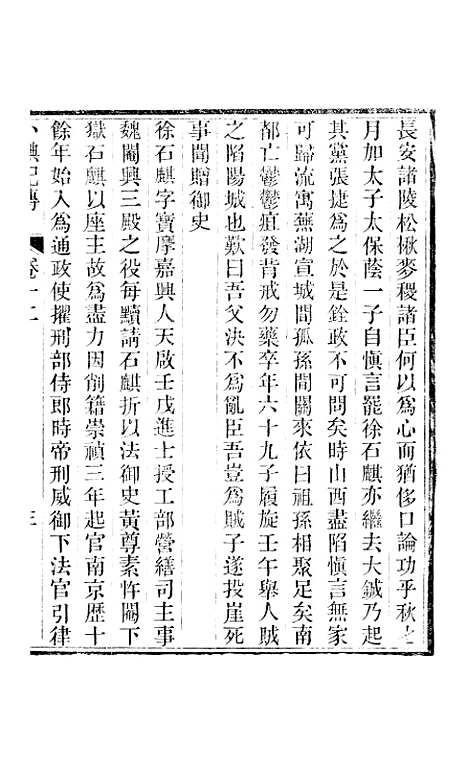 長安諸陵松楸麥稷諸臣何以爲心而猶侈口論功乎秋七
月加太子太保蔭一子自愼言罷徐石麒亦繼去大鋮乃起
其黨張捷爲之於是銓政不可問矣時山西盡陷愼言無家
可歸流寓蕪湖宣城間孤孫間關來依曰祖孫相聚足矣南
都亡鬱鬱疽發背戒勿藥卒年六十九子履旋壬午舉人賊
之陷陽城也歎曰吾父決不爲亂臣吾豈爲賊子遂投崖死
事聞贈御史
徐石麒字寶摩嘉興人天啟壬戌進士授工部營繕司主事
魏閹興三殿之役每黷請石麒折以法御史黃尊素忤閹下
獄石麒以座主故爲盡力因削籍崇禎三年起官南京歷十
餘年始入爲通政使擢刑部侍郎時帝刑威御下法官引律
小腆紀傳 卷十二 三